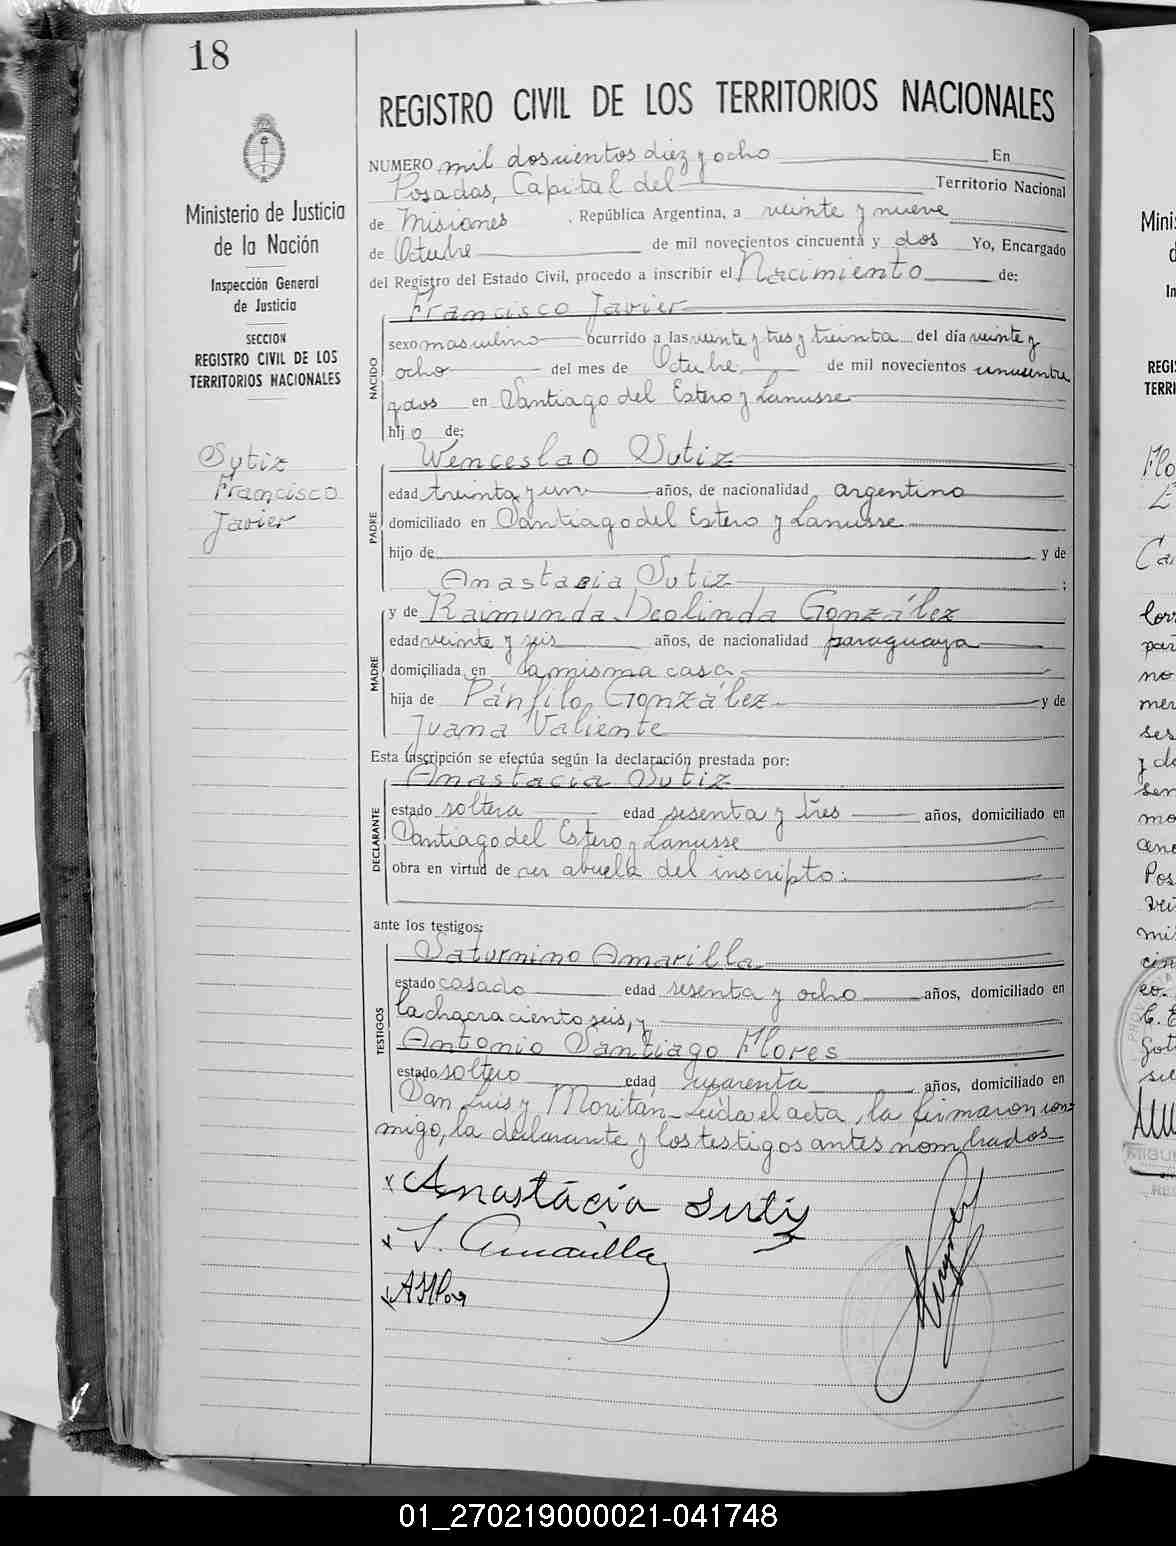 18
REGISTRO CIVIL DE LOS TERRITORIOS NACIONALES
Ministerio de Justicia
de la Nación
Inspección General
de Justicia
SECCION
REGISTRO CIVIL DE LOS
TERRITORIOS NACIONALES
Sutiz
Francisco
Javier
NUMERO mil doscientos diez y ocho En
Posadas, Capital del Territorio Nacional
de Misiones , República Argentina, a veinte y nueve
de Octubre de mil novecientos cincuenta y dos Yo, Encargado
del Registro del Estado Civil, procedo a inscribir el Nacimiento de:
NACIDO
Francisco Javier
sexo masculino ocurrido a las veinte y tres y treinta del día veinte y
ocho del mes de Octubre de mil novecientos cincuenta
y dos en Santiago del Estero y Lanusse
hij o de:
PADRE
Wenceslao Sutiz
edad treinta y un años, de nacionalidad argentino
domiciliado en Santiago del Estero y Lanusse
hijo de y de
Anastacia Sutiz ;
MADRE
y de Raimunda Deolinda González
edad veinte y seis años, de nacionalidad paraguaya
domiciliada en la misma casa
hija de Pánfilo González y de
Juana Valiente
Esta inscripción se efectúa según la declaración prestada por:
DECLARANTE
Anastacia Sutiz
estado soltera edad sesenta y tres años, domiciliado en
Santiago del Estero y Lanusse
obra en virtud de ser abuela del inscripto.
ante los testigos:
TESTIGOS
Saturnino Amarilla
estado casado edad sesenta y ocho años, domiciliado en
la chacra ciento seis, y
Antonio Santiago Flores
estado soltero edad cuarenta años, domiciliado en
San Luis y Moritán_ Leída el acta, la firmaron con-
migo, la declarante y los testigos antes nombrados
x Anastácia Sutiz
x S. Amarilla
x ASFlores
01_270219000021-041748